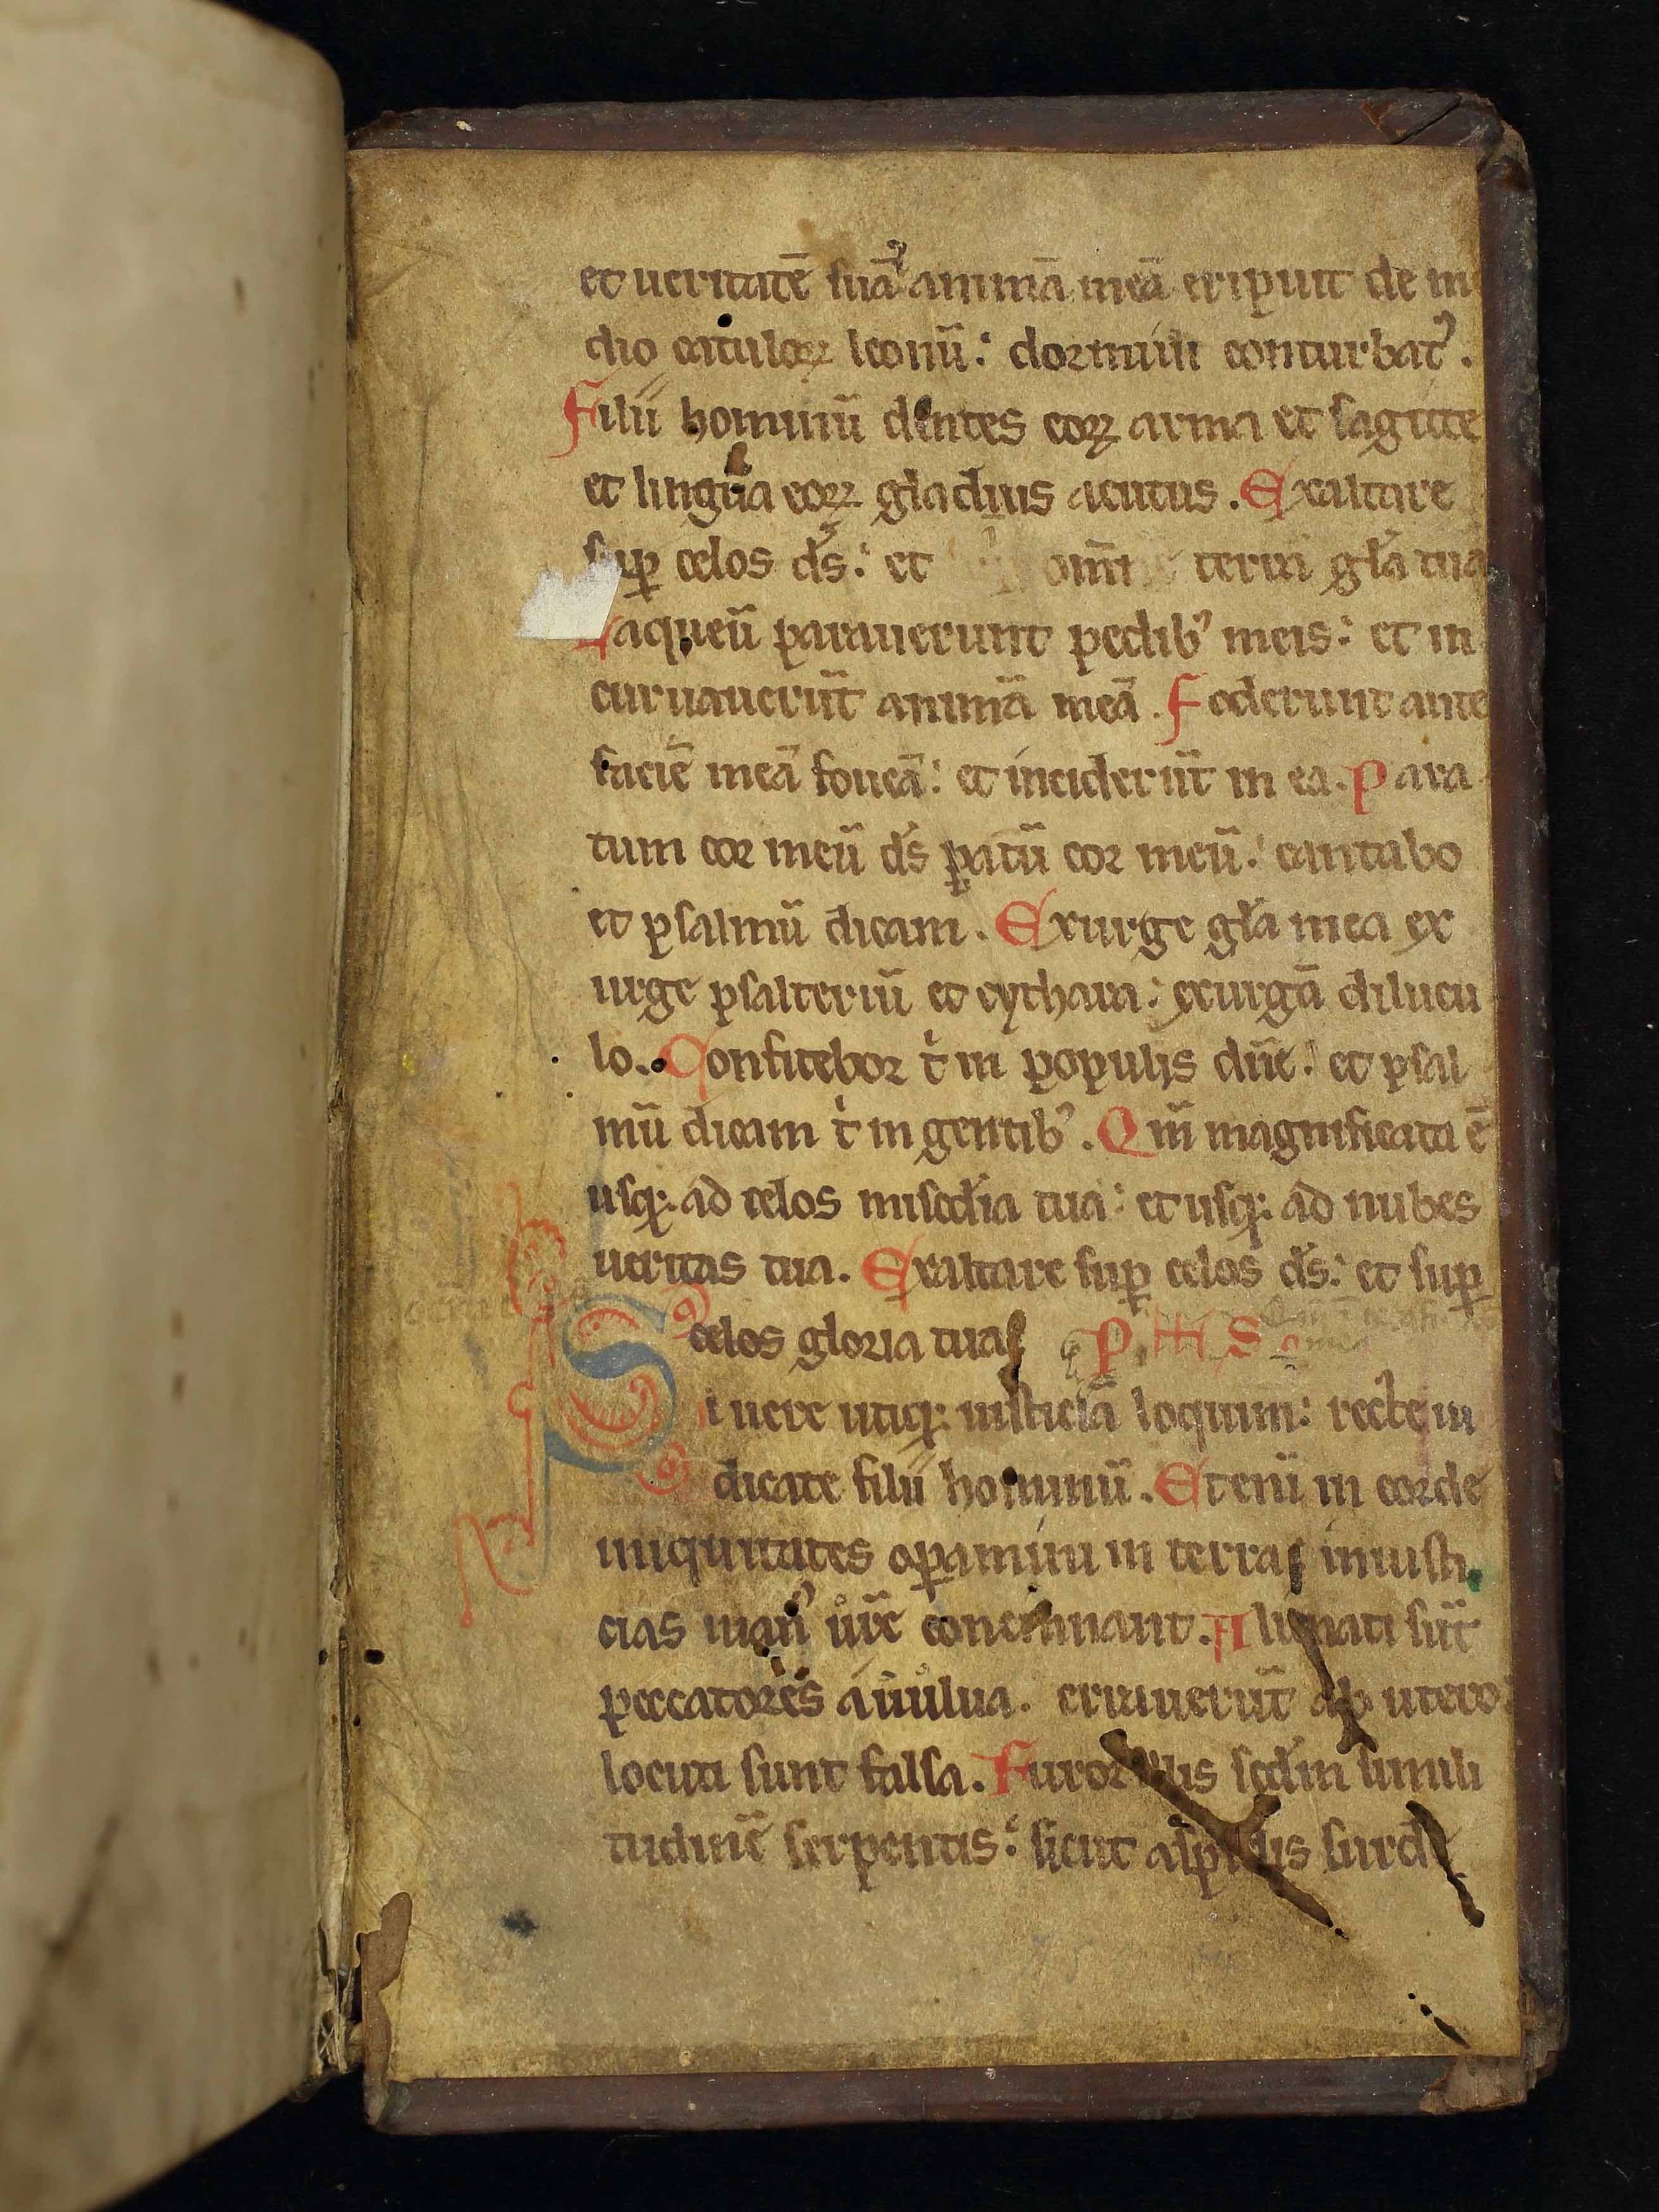 et ueritatē suā animā meā eripuit de m
dio catuloꝝ leonū: dormiui conturbatꝰ.
Filii hominū dentes eoꝝ arma et sagitte
et lingua eoꝝ gladius acutus. Exaltare
suꝑ celos ds̄: et om̄ terra gła tua
Laqueū parauerunt pedibꝰ meis: et in
curuauerūt animā meā. Foderunt ante
faciē meā foueā: et inciderūt in ea. Para
tum cor meū ds̄ ꝑatū cor meū: cantabo
et psalmū dicam. Exurge gła mea ex
urge psalteriū et cythara: exurgā dilucu
lo. Confitebor ṫ in populis dn̄e: et psal
mū dicam ṫ in gentibꝰ. Qm̄ magnificata ē
usqꝫ ad celos miscd̓ia tua: et usqꝫ ad nubes
ueritas tua. Exaltare suꝑ celos ds̄: et suꝑ
celos gloria tua
Si uere utiqꝫ iusticiā loquim̄: recte iu
dicate filii hominū. Eteni̅ in corde
iniquitates oꝑamini in terra iniusti
cias manꝰ ur̄e concinnant. Alienati sūt
peccatores a uulua. errauerūt ab utero
locuti sunt falsa. Furor illis scd̓m simili
tudinē serpentis: sicut aspidis surde